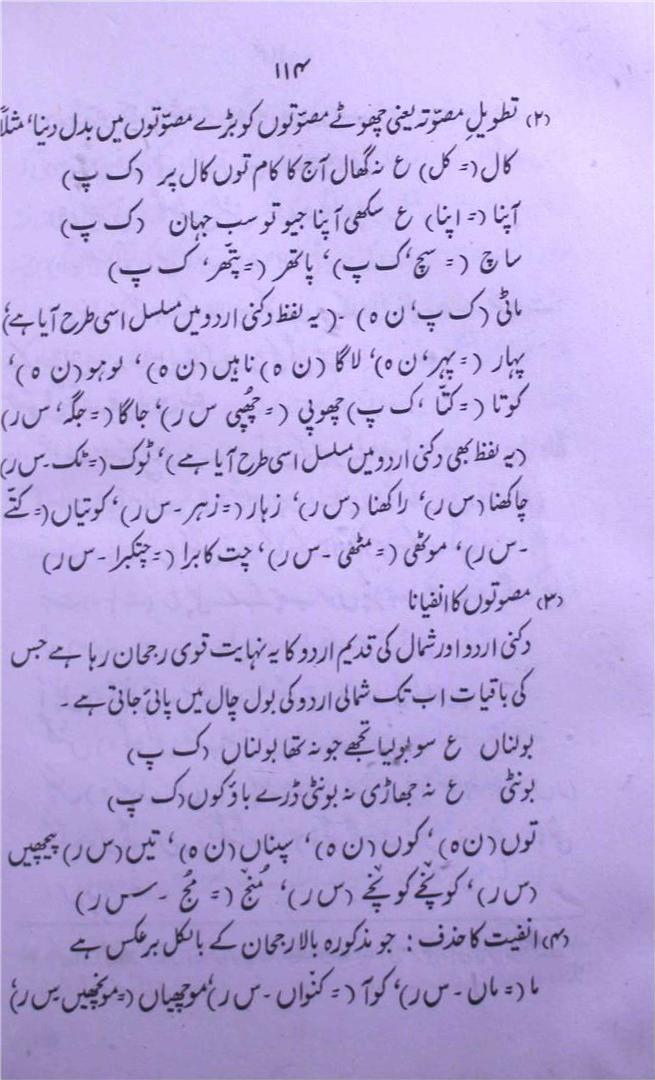 ۱۱۴
(۲) تطویلِ مصوّتہ یعنی چھوٹے مصوّتوں کو بڑے مصوّتوں میں بدل دینا، مثلاً
کال (= کل) ع نہ گھال آج کا کام توں کال پر (ک پ)
آپنا (= اپنا) ع سکھی آپنا جیو تو سب جہان (ک پ)
ساچ (= سچ، ک پ)، پاتھر (= پتّھر، ک پ)
ماٹی (ک پ، ن ہ) - (یہ لفظ دکنی اردو میں مسلسل اسی طرح آیا ہے)،
پہار (= پہر، ن ہ)، لاگا (ن ہ) ناہیں (ن ہ)، لوہو (ن ہ)،
کوتا (= کتّا، ک پ) چھوپی (= چُھپی س ر)، جاگا (= جگہ، س ر)
(یہ لفظ بھی دکنی اردو میں مسلسل اسی طرح آیا ہے)، ٹوک (= ٹک۔ س ر)
چاکھنا (س ر)، راکھنا (س ر)، زہار (= زہر۔ س ر)، کوتیاں (= کتّے
۔ س ر)، موٹھی (= مٹھی ۔ س ر)، چت کابرا (= چتکبرا ۔ س ر)
(۳) مصوتوں کا انفیانا
دکنی اردو اور شمال کی قدیم اردو کا یہ نہایت قوی رجحان رہا ہے جس
کی باقیات اب تک شمالی اردو کی بول چال میں پائی جاتی ہے ۔
بولناں ع سو بولیا تجھے جو نہ تھا بولناں (ک پ)
بونٹی ع نہ جھاڑی نہ بونٹی ڈرے باؤ کوں (ک پ)
توں (ن ہ)، کوں (ن ہ)، سپناں (ن ہ)، تیں (س ر) پیچھیں
(س ر)، کونچے کونچے (س ر)، مُنج (= مُج ۔ س ر)
(۴) انفیت کا حذف : جو مذکورہ بالا رجحان کے بالکل برعکس ہے
ما (= ماں ۔ س ر)، کوآ (= کنواں ۔ س ر)، موچھیاں (= مونچھیں س ر)،